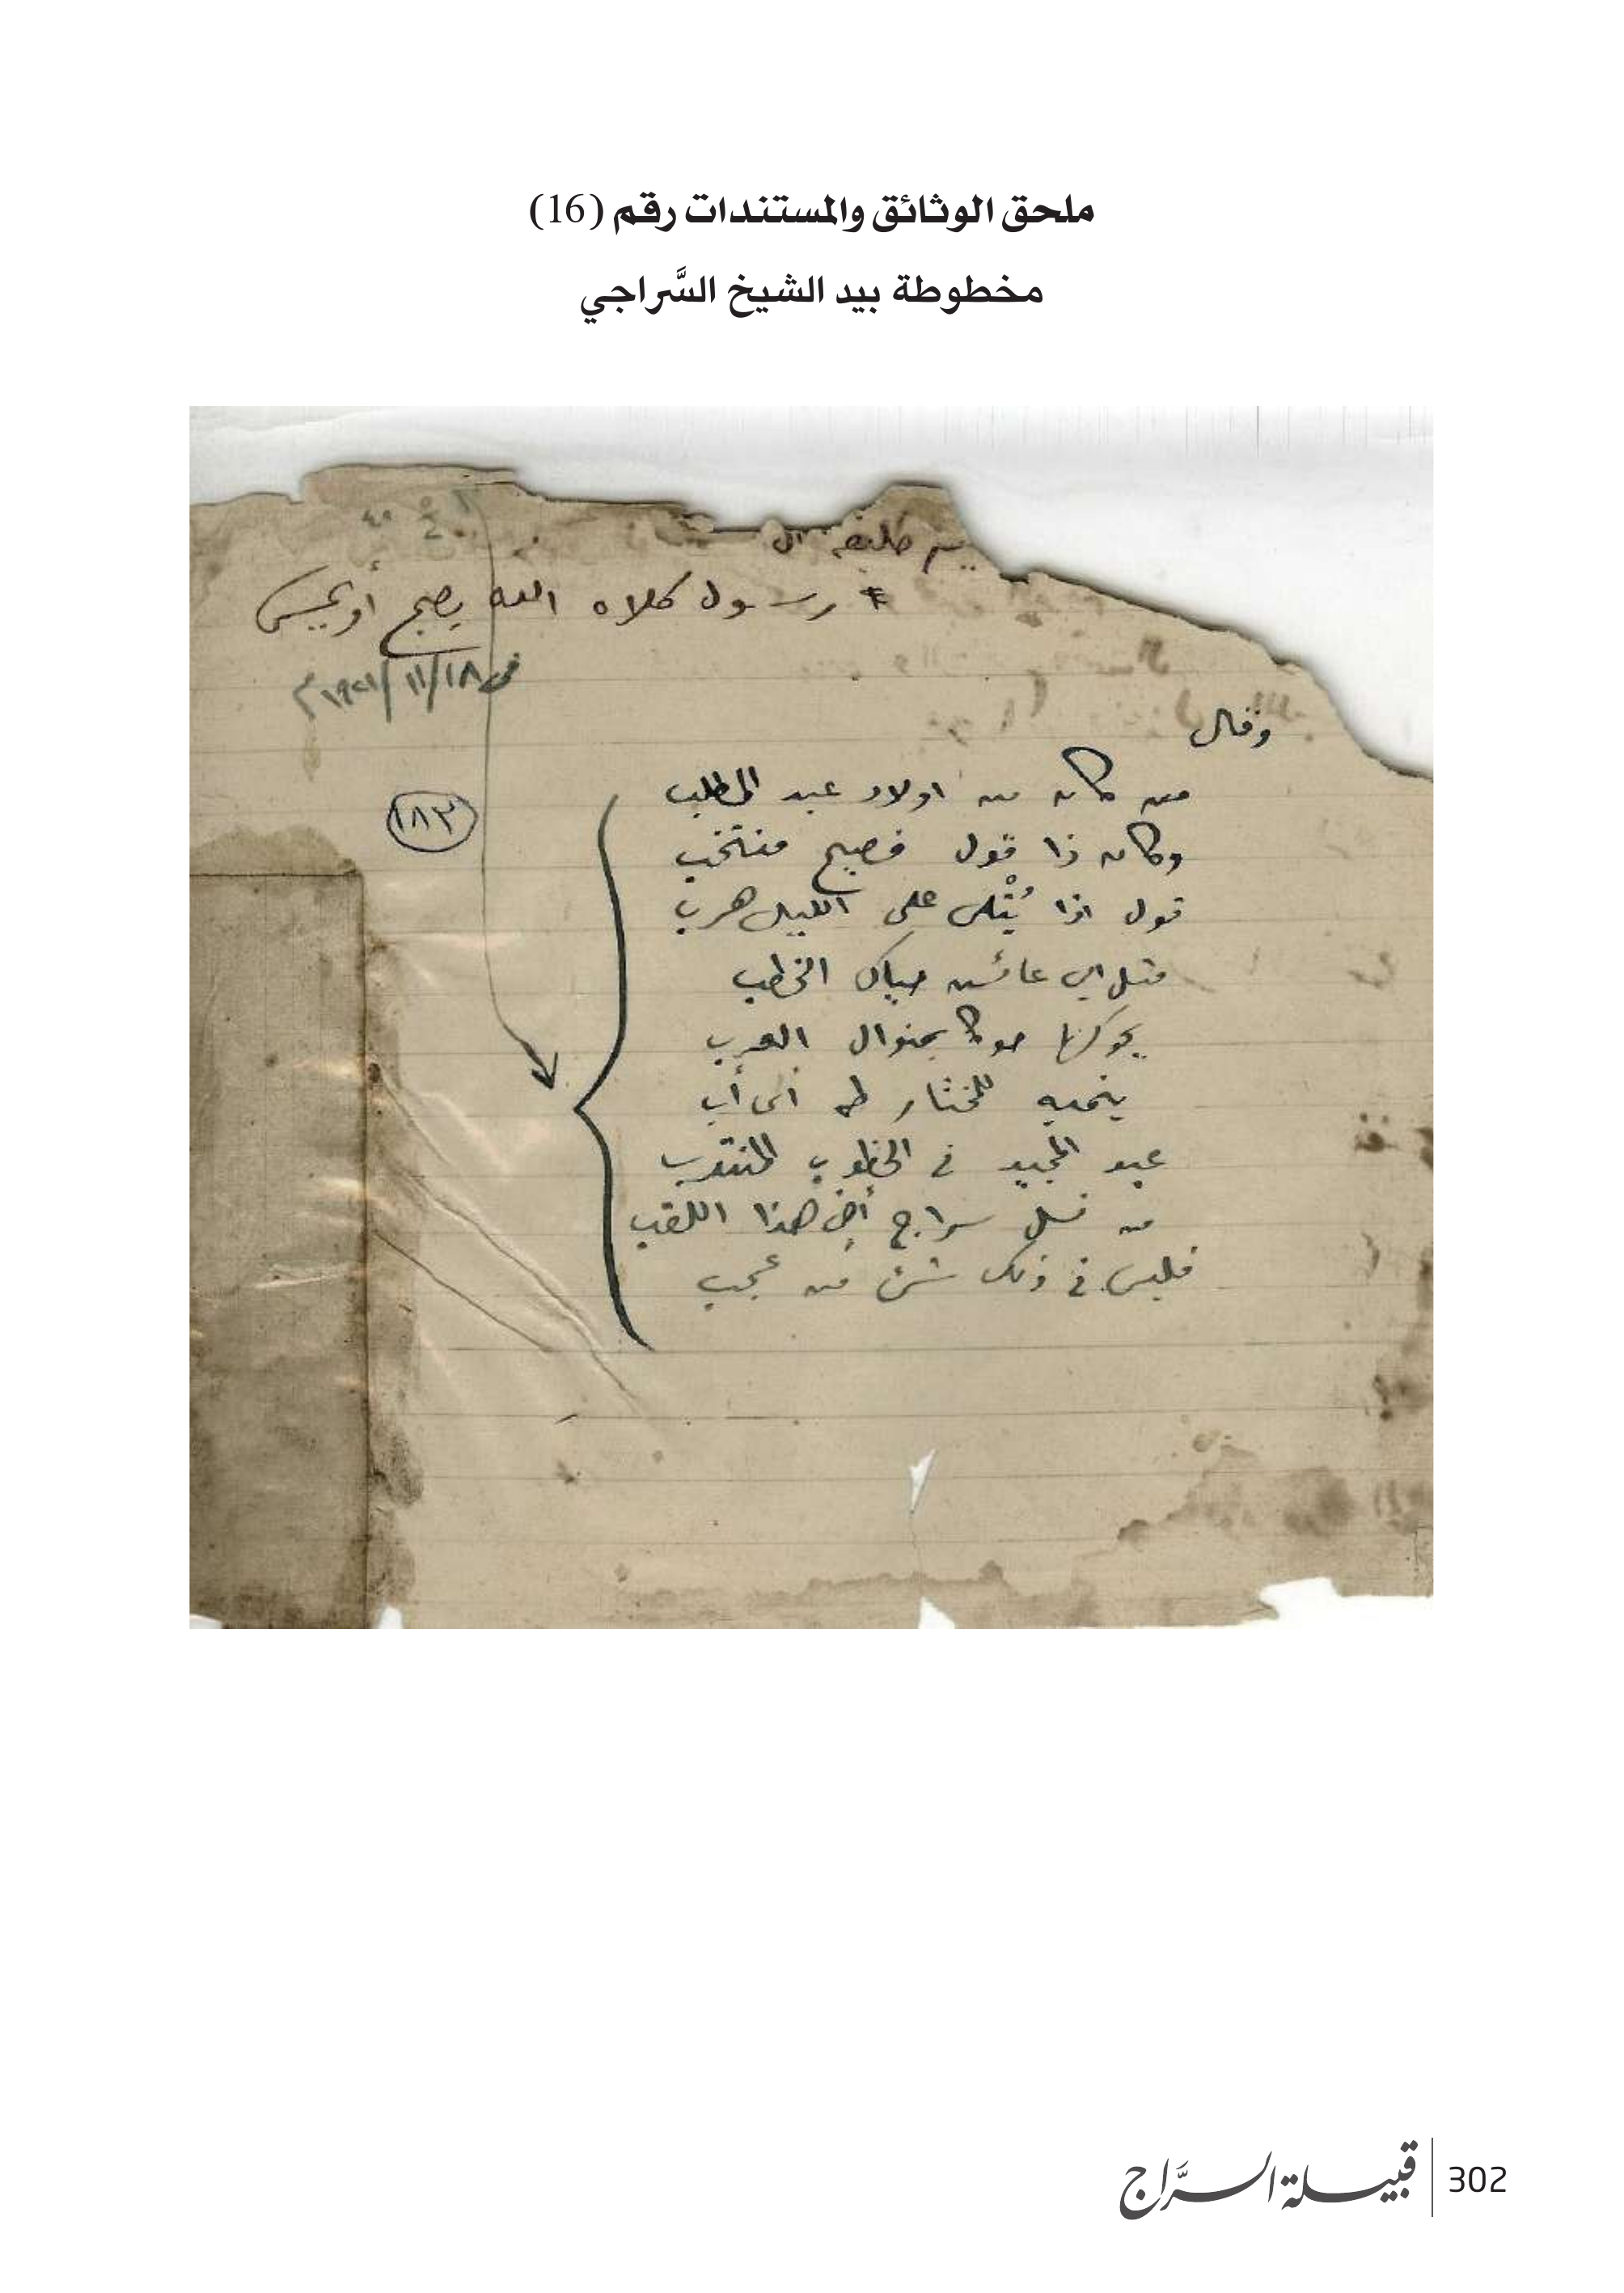 ملحق الوثائق والمستندات رقم (16)
مخطوطة بيد الشيخ السَّراجي
رسول كلاه الله يصبح أو يمسى
في ١٨/١١/١٩٢١م
وقال
(١٨٣)
من كان من اولاد عبد المطلب
وكان ذا قول فصيح منتخب
قول اذا يُتْلى على الليل هرب
مثل ابى عائش حياك الخطب
يحوكها حوكا بمنوال العرب
ينميه للمختار طه اى أب
عبد المجيد فى الخطوب المنتدب
من نسل سراج أخى هذا اللقب
فليس فى ذلك شئ من عجب
302 قبيلة السَّراج